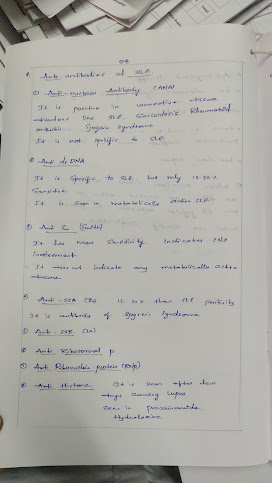 Anti antibodies of SLE
① Anti-nuclear Antibody (ANA)
It is positive in connective tissue
disorders like SLE, Sarcoidosis, Rheumatoid
arthritis. Sjogren Syndrome
It is not specific to SLE
② Anti ds DNA
It is Specific to SLE, but only
Sensitive
It is seen in metabolically active SLE
③ Anti Sm (Smith)
It has more Sensitivity indicates CNS
involvement
- It does not indicate any metabolically active
disease
④ Anti-SSA (Ro) SLE positivity
It is antibody of Sjogren Syndrome
⑤ Anti-SSB (La)
⑥ Anti Ribosomal p
⑦ Anti Ribonucleic protein (RNP)
⑧ Anti Histone It is seen after few
drugs causing lupus
seen in procainamide
Hydralazine